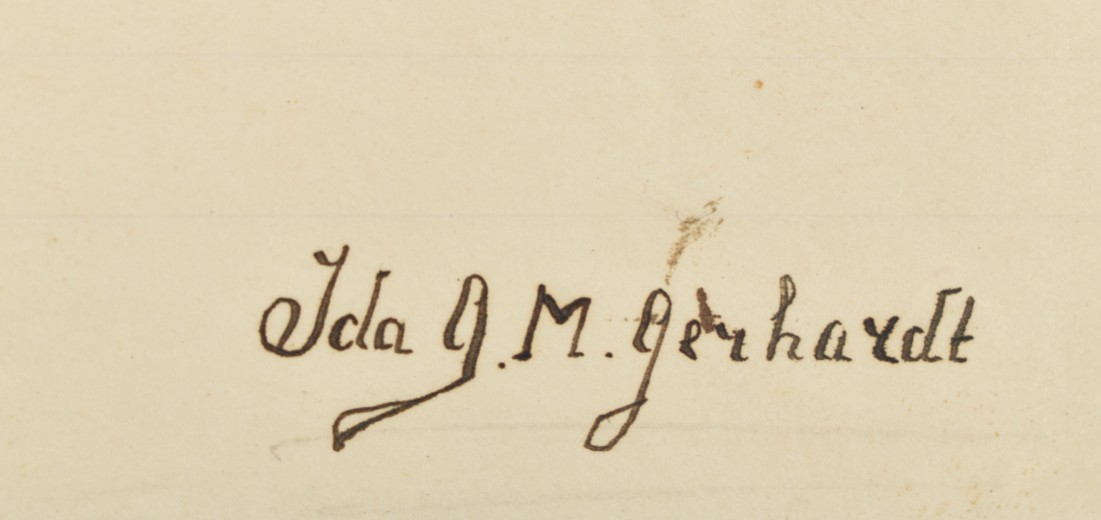 Ida G. M. Gerhardt